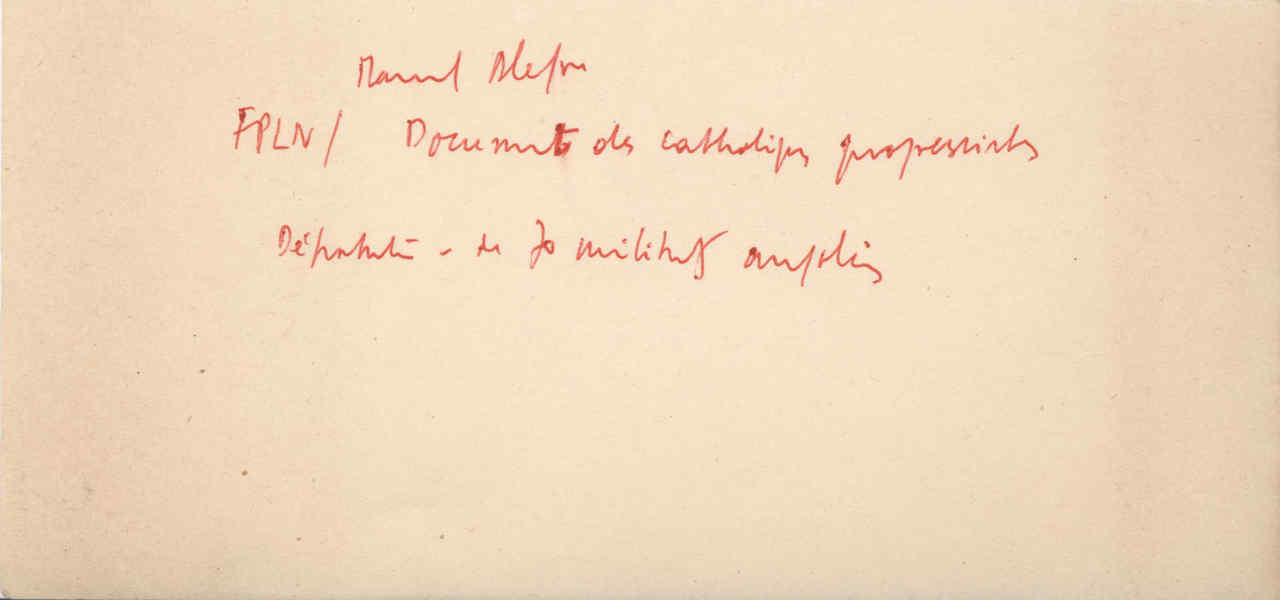 Manuel Alegre
FPLN / Documents des catholiques progressistes
Déportation - de 70 militants angolais